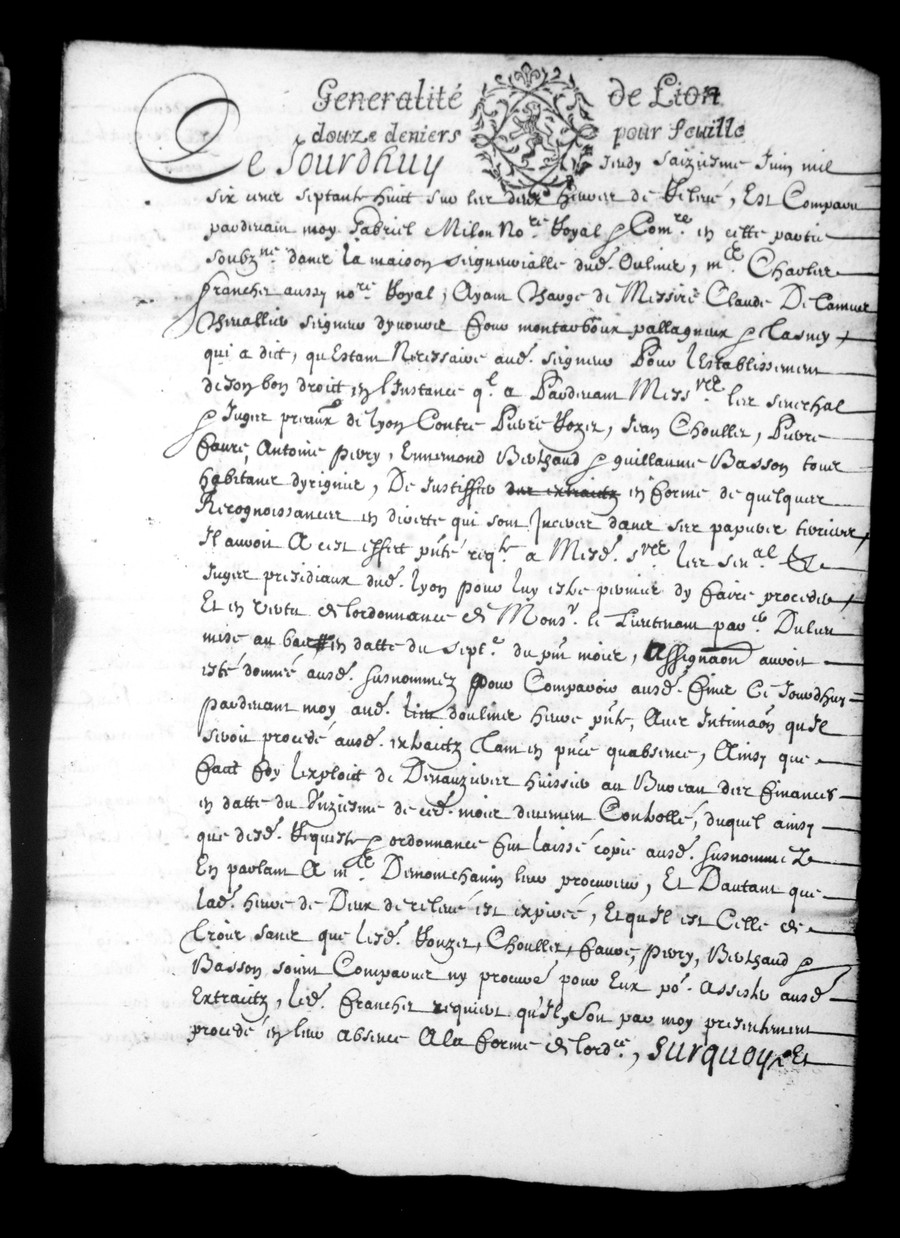 Generalité de Lion
douze deniers pour feuille
Ce Jourdhuy Jeudy Saiziesme Juin mil
six cens septante huit sur les deux heures de Relevé, Est Comparu
pardevant moy Gabriel Milon No.re Royal & Com.re en cette partie
Soubz.né dans la maison seigneurialle dud. Oulins, m.e Charles
franchet aussy no.re Royal, Ayant Charge de Messire Claude De
Chevallier seigneur pour &
qui a dict, qu Estant Necessaire aud. seigneur Pour l'Establissement
de Son bon droit en l'Instance q.l a Pardevant Mess.rs les senechal
& Juges presid.aux de Lyon Contre Pierre Rozet, Jean Chollet, Pierre
Favre, Antoine Perry, Ennemond Berthaud & guillaume Basson tous
habitans dyrigny, De Justiffier des extraitz en forme de quelques
Recognoissances en diverte qui sont Inserées dans ses papiers terriers
Il auroit A cest effect p.nté req.te a Mesd. s.rs les sen.al &
Juges presidiaux dud. Lyon pour luy estre permis dy faire proceder
Et en vertu de lordonnance de Mons.r le Lieutenant par.er Dulieu
mise au bas en datte du Sept.e du p.nt mois, Assignaon auroit
esté donnée ausd. susnommez pour Comparoir ausd. fins Ce Jourdhuy
pardevant moy aud. lieu doulins heure p.nte, Avec Intimaon quil
seroit procedé ausd. extraitz tant en p.nce quabsence, Ainsy que
faict foy lexploit de Denauzieres Huissier au Bureau des finances
en datte du Unziesme de ced. mois deuement Controllé, duquel ainsy
que desd. Requeste & ordonnance fut laissé copie ausd. susnommez
En parlant A m.e Demontchanin leur procureur, Et Dautant que
lad. heure de Deux de relevé est expirée, Et quil est Celle de
trois sans que lesd. Rouzet, Chollet, favre, perry, Berthaud &
Basson, soient Comparus ny procur.r pour Eux po.r Assister ausd.
Extraitz, led. franchet requiert quil y soit par moy presentement
procedé en leur absence A la forme de lord.ce, Surquoy Et